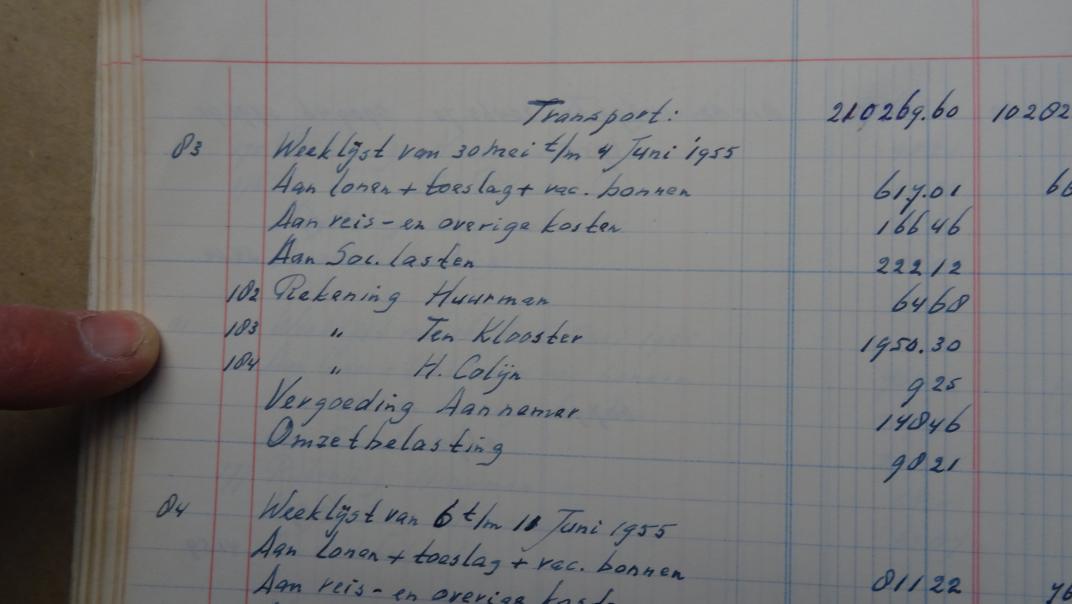 Transport: 210269.60 10202
83 Weeklijst van 30 mei t/m 4 Juni 1955
Aan lonen + toeslag + vac. bonnen 617.01 66
Aan reis- en overige kosten 166 46
Aan Soc. lasten 222 12
182 Rekening Huurman 64 68
183 " Ten Klooster 1950.30
184 " H. Colijn 9 25
Vergoeding Aannemer 148 46
Omzetbelasting 98 21
84 Weeklijst van 6 t/m 11 Juni 1955
Aan lonen + toeslag + vac. bonnen 811 22 76
Aan reis- en overige